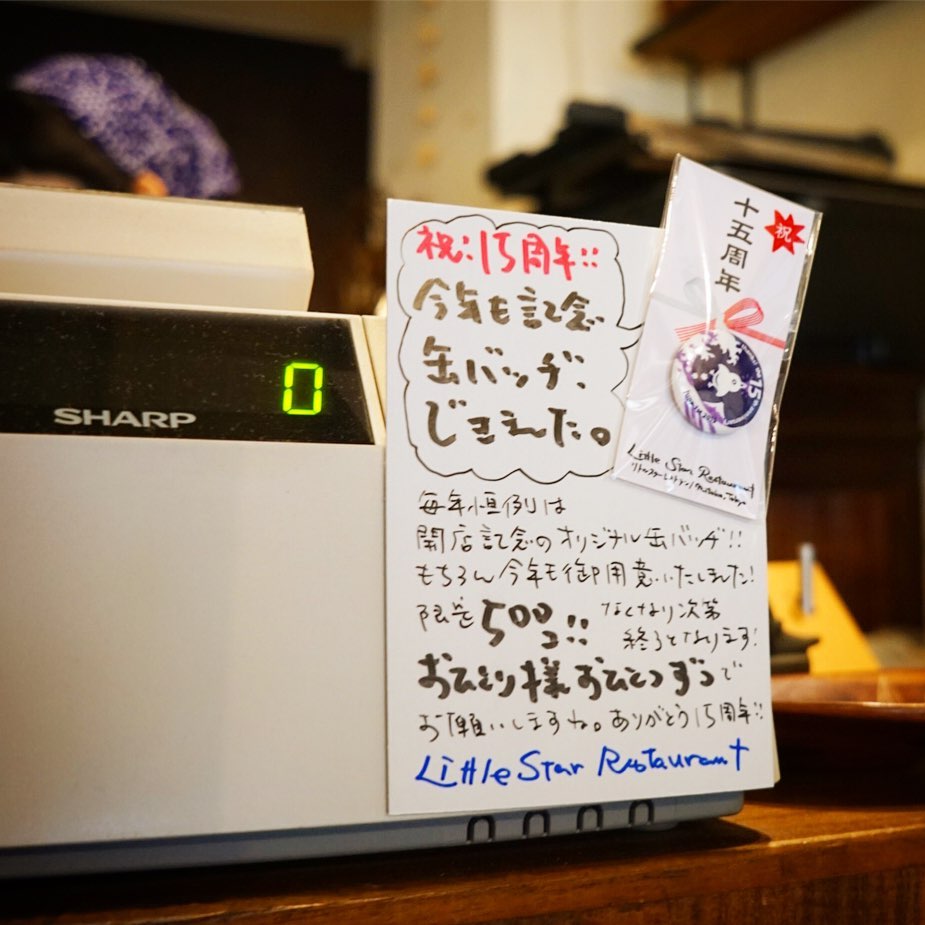 SHARP
0
祝:15周年!!
今年も記念
缶バッヂ、
じさえた。
毎年恒例は
開店記念のオリジナル缶バッヂ!!
もちろん今年も御用意いたしました!
限定500コ!! なくなり次第
終了となります!
おひとり様おひとつずつで
お願いしますね。ありがとう15周年!!
Little Star Restaurant
祝
十五周年
15
Little Star Restaurant
リトルスターレストラン/Mitaka, Tokyo